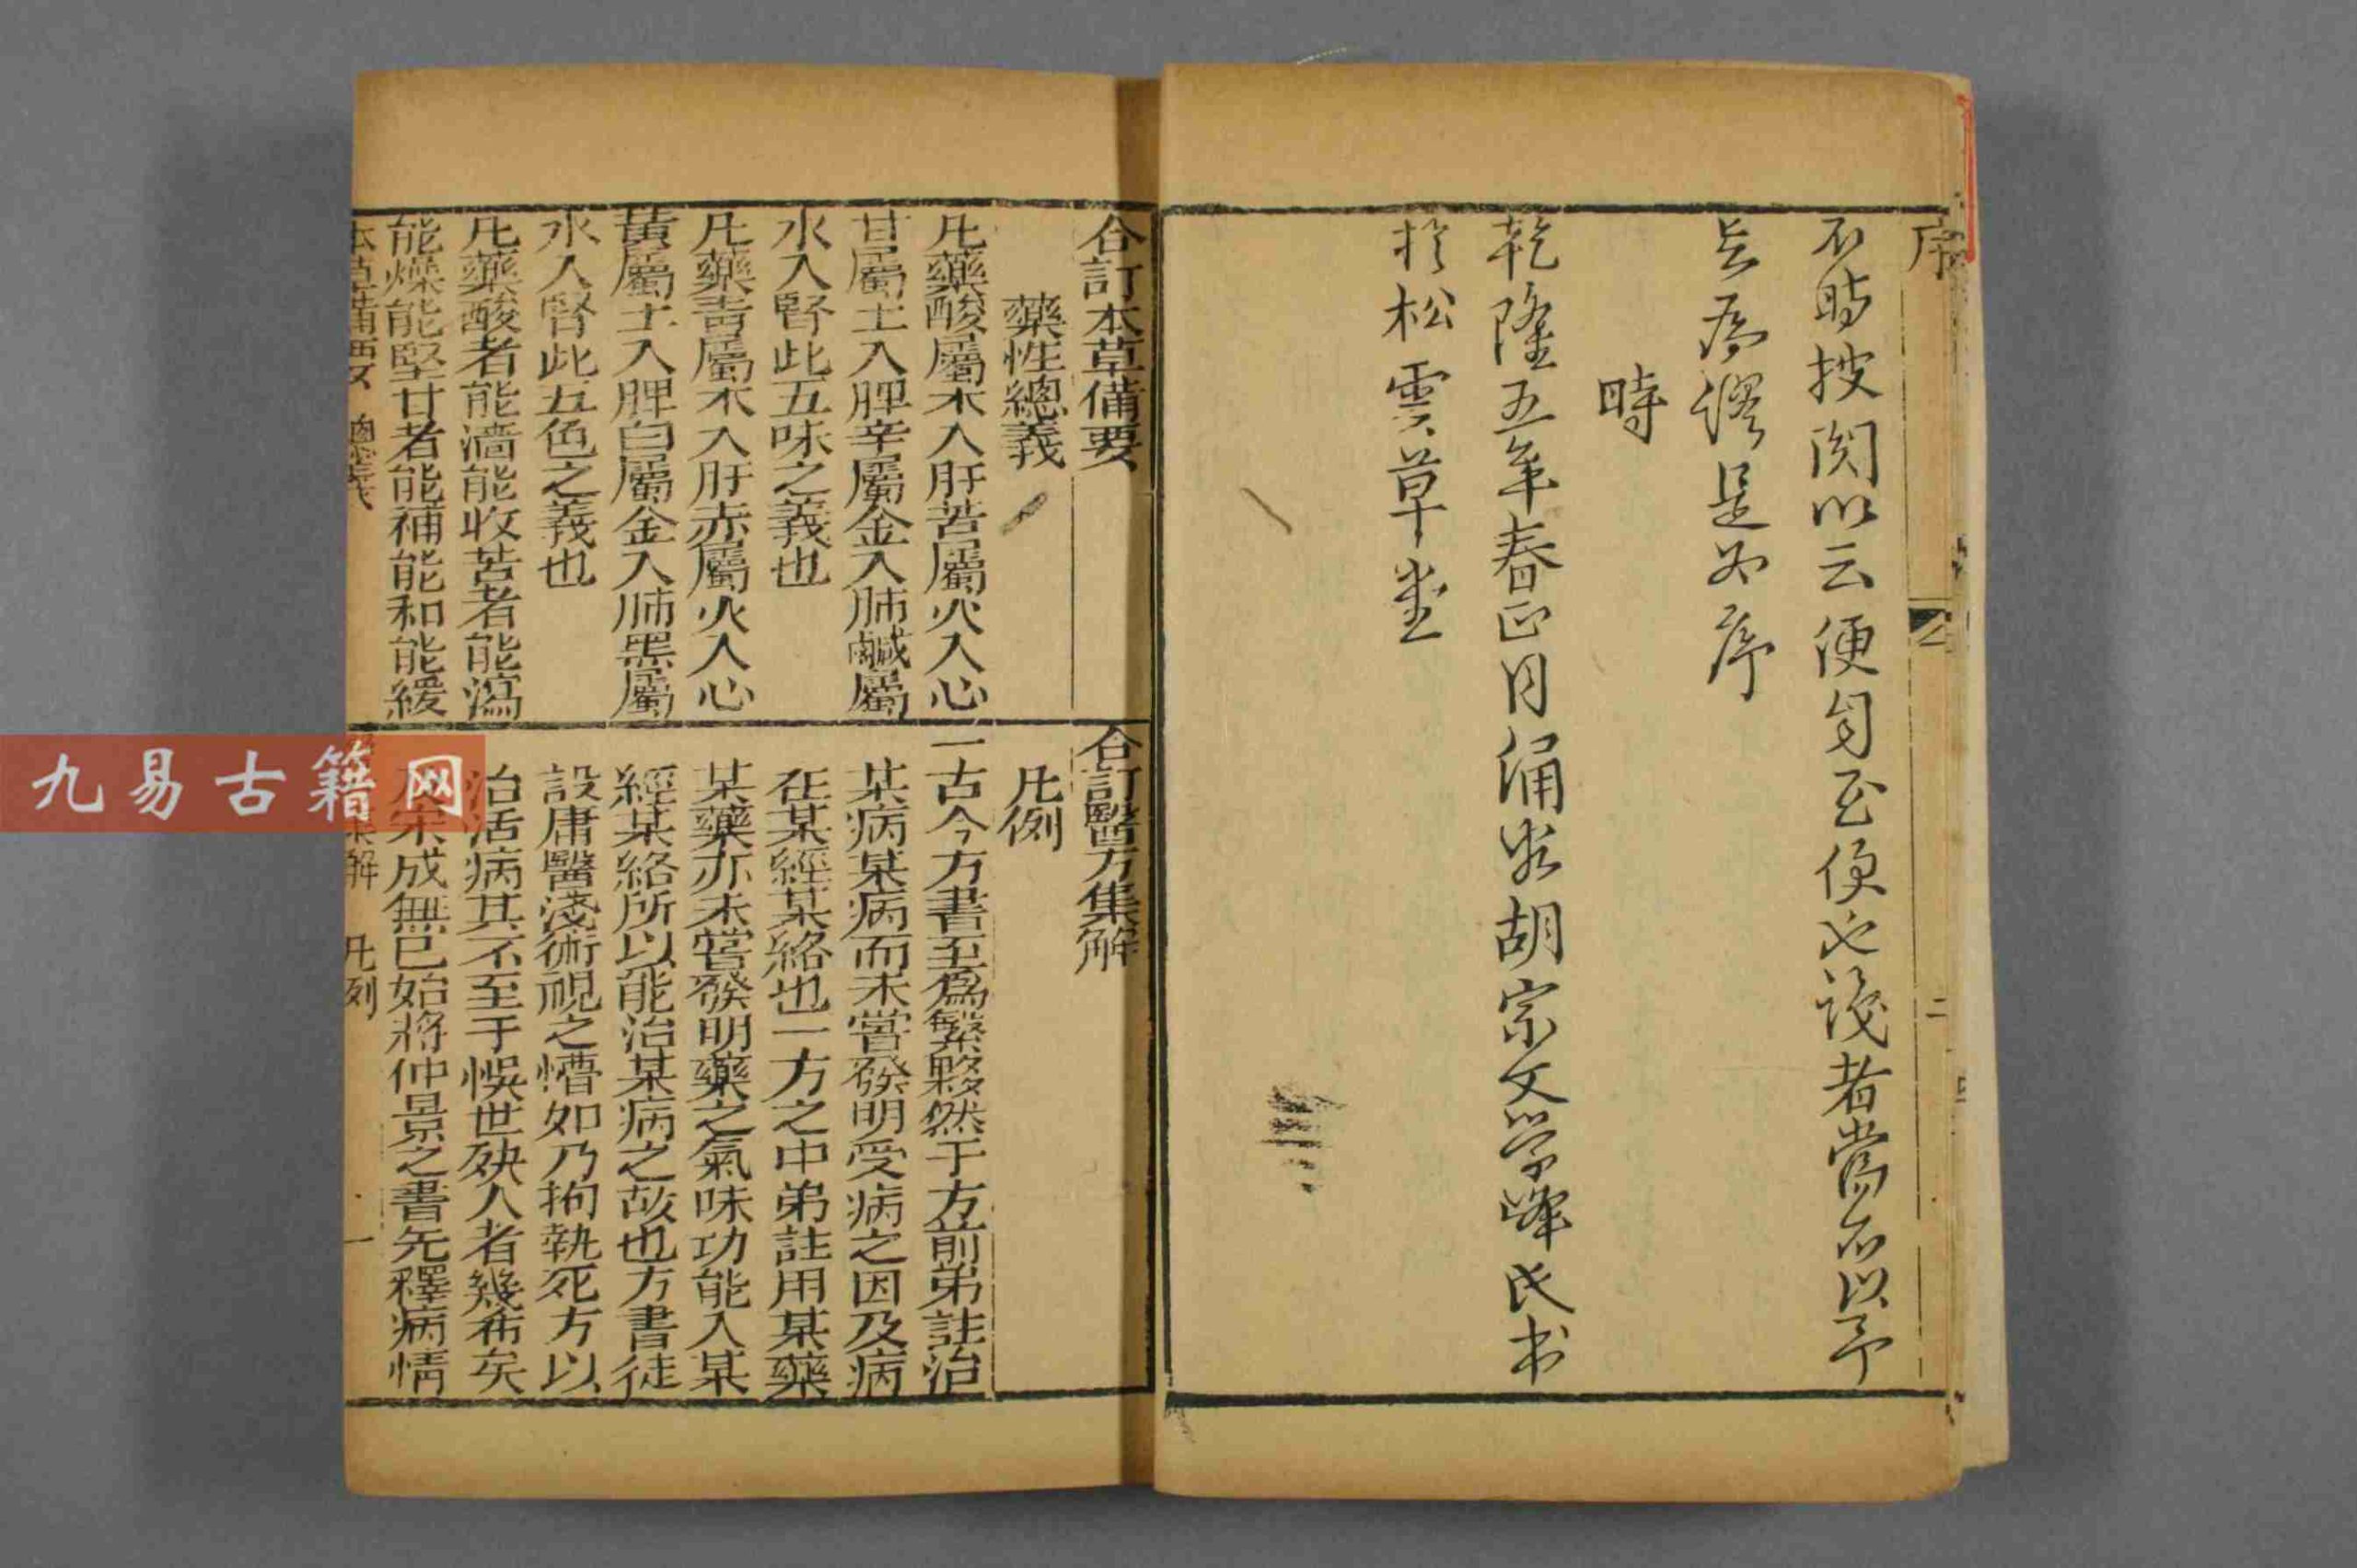 序
不時披閱以云便身至便也後者當不以予
言為謬是為序
時
乾隆五年春正月涌泉胡宗文學峰氏书
於松雲草堂
二
合訂本草備要
藥性總義
凡藥酸屬木入肝苦屬火入心
甘屬土入脾辛屬金入肺鹹屬
水入腎此五味之義也
凡藥青屬木入肝赤屬火入心
黃屬土入脾白屬金入肺黑屬
水入腎此五色之義也
凡藥酸者能濇能收苦者能瀉
能燥能堅甘者能補能和能緩
本草備要 總義
合訂醫方集解
凡例
一古今方書至爲繁夥然于方前弟註治
某病某病而未嘗發明受病之因及病
在某經某絡也一方之中弟註用某藥
某藥亦未嘗發明藥之氣味功能入某
經某絡所以能治某病之故也方書徒
設庸醫淺術視之懵如乃拘執死方以
治活病其不至于悞世殃人者幾希矣
及宋成無已始將仲景之書先釋病情
集解 凡例 一
九易古籍网